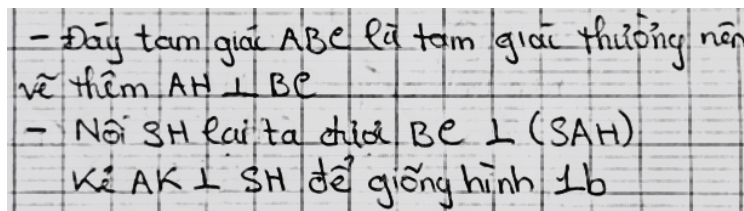 - Đáy tam giác ABC là tam giác thường nên
vẽ thêm AH ⊥ BC
- Nối SH lại ta được BC ⊥ (SAH)
Kẻ AK ⊥ SH để giống hình 1b